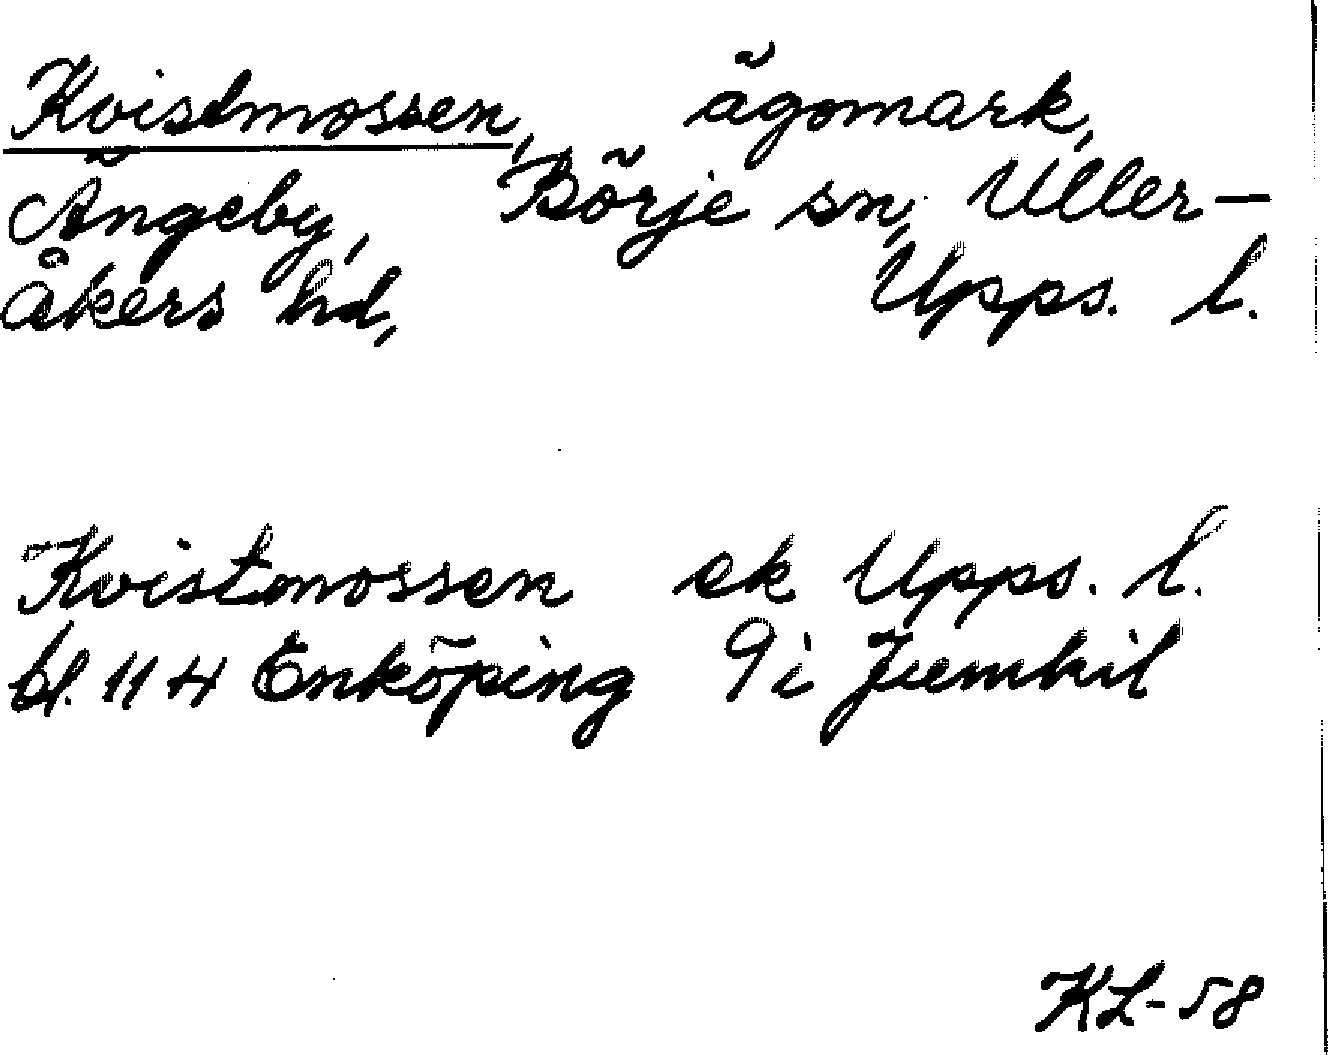 Kvistmossen, ägomark,
Ängeby, Börje sn, Uller-
åkers hd, Upps. l.
Kvistmossen ek Upps. l.
bl. 114 Enköping 9 i Jumkil
KL-58